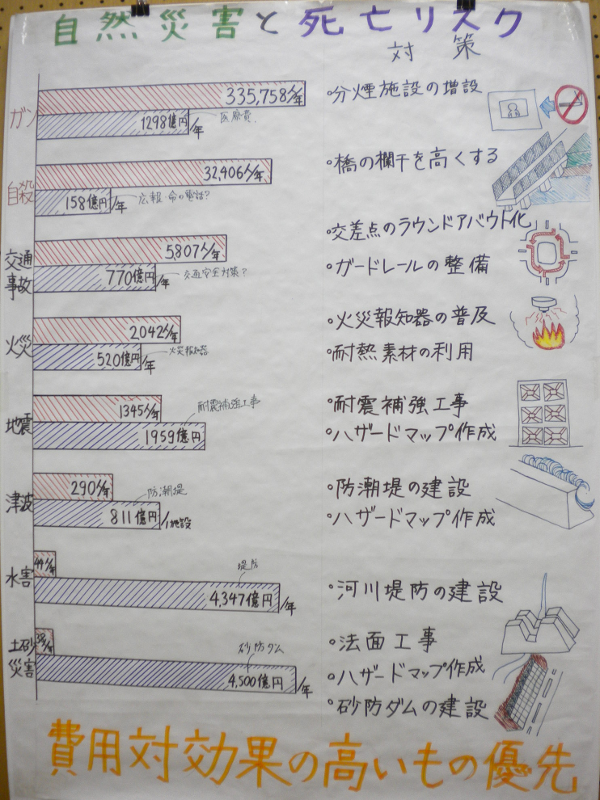 自然災害と死亡リスク
対策
ガン
335,758人/年
1298億円/年
医療費
・分煙施設の増設
自殺
32,406人/年
158億円/年
広報・命の電話?
・橋の欄干を高くする
交通事故
5,807人/年
770億円/年
交通安全対策?
・交差点のラウンドアバウト化
・ガードレールの整備
火災
2042人/年
520億円/年
火災報知器
・火災報知器の普及
・耐熱素材の利用
地震
1345人/年
1959億円
耐震補強工事
・耐震補強工事
・ハザードマップ作成
津波
290人/年
811億円/施設
防潮堤
・防潮堤の建設
・ハザードマップ作成
水害
人/年
4,347億円/年
堤防
・河川堤防の建設
土砂災害
人/年
4,500億円/年
砂防ダム
・法面工事
・ハザードマップ作成
・砂防ダムの建設
費用対効果の高いもの優先